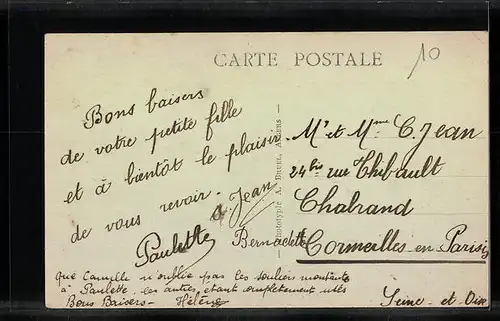 CARTE POSTALE
10
Bons baisers
de votre petite fille
et à bientôt le plaisir
de vous revoir.
Jean
Paulette
Bernadette
que Camille n'oublie pas les souliers montants
à Paulette, les autres étant complètement usés
Bons Baisers - Hélène
Phototype A. Bruel, Angers
Mr et Mme C. Jean
24 bis rue Thibault
Chabrand
Cormeilles-en-Parisis
Seine-et-Oise